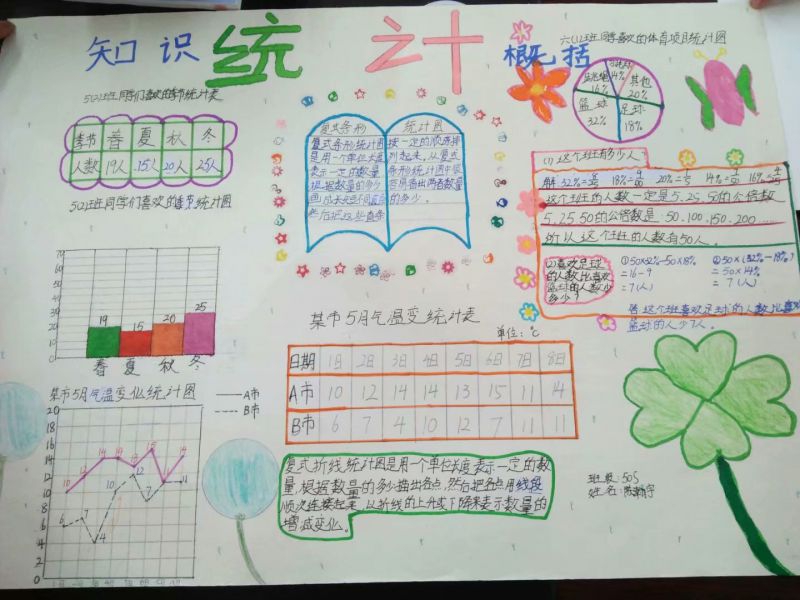 知识统计概括
5(2)班同学们喜欢的季节统计表
季节 春 夏 秋 冬
人数 19人 15人 20人 25人
5(2)班同学们喜欢的季节统计图
70
60
50
40
30
20
10
0
19 15 20 25
春 夏 秋 冬
某市5月气温变化统计图
A市
B市
20
18
16
14
12
10
8
6
4
2
0
10 12 14 14 13 15 11 14
6 7 4 10 12 7 11 11
复式条形
复式条形统计图
是用一个单位长度
表示一定的数量
根据数量的多少
画成长短不同的直条
然后把这些直条
统计图
按一定的顺序排
列起来,从复式
条形统计图中很
容易看出两者数量
的多少。
某市5月气温变统计表
单位:℃
日期 1日 2日 3日 4日 5日 6日 7日 8日
A市 10 12 14 14 13 15 11 14
B市 6 7 4 10 12 7 11 11
复式折线统计图是用一个单位长度表示一定的数
量,根据数量的多少描出各点,然后把各点用线段
顺次连接起来,以折线的上升或下降来表示数量的
增减变化。
六(1)班同学喜欢的体育项目统计图
14%
其他
20%
16%
篮球
32%
足球
18%
(1)这个班有多少人
这个班的人数一定是5,25,50的公倍数
5,25,50的公倍数是:50,100,150,200……
所以这个班的人数有50人。
(2)喜欢足球
的人数比喜欢
篮球的人数少
多少?
①50×32%-50×18%
=16-9
=7(人)
②50×(32%-18%)
=50×14%
=7(人)
答:这个班喜欢足球的人数比喜欢
篮球的人少7人。
班级:505
姓名: